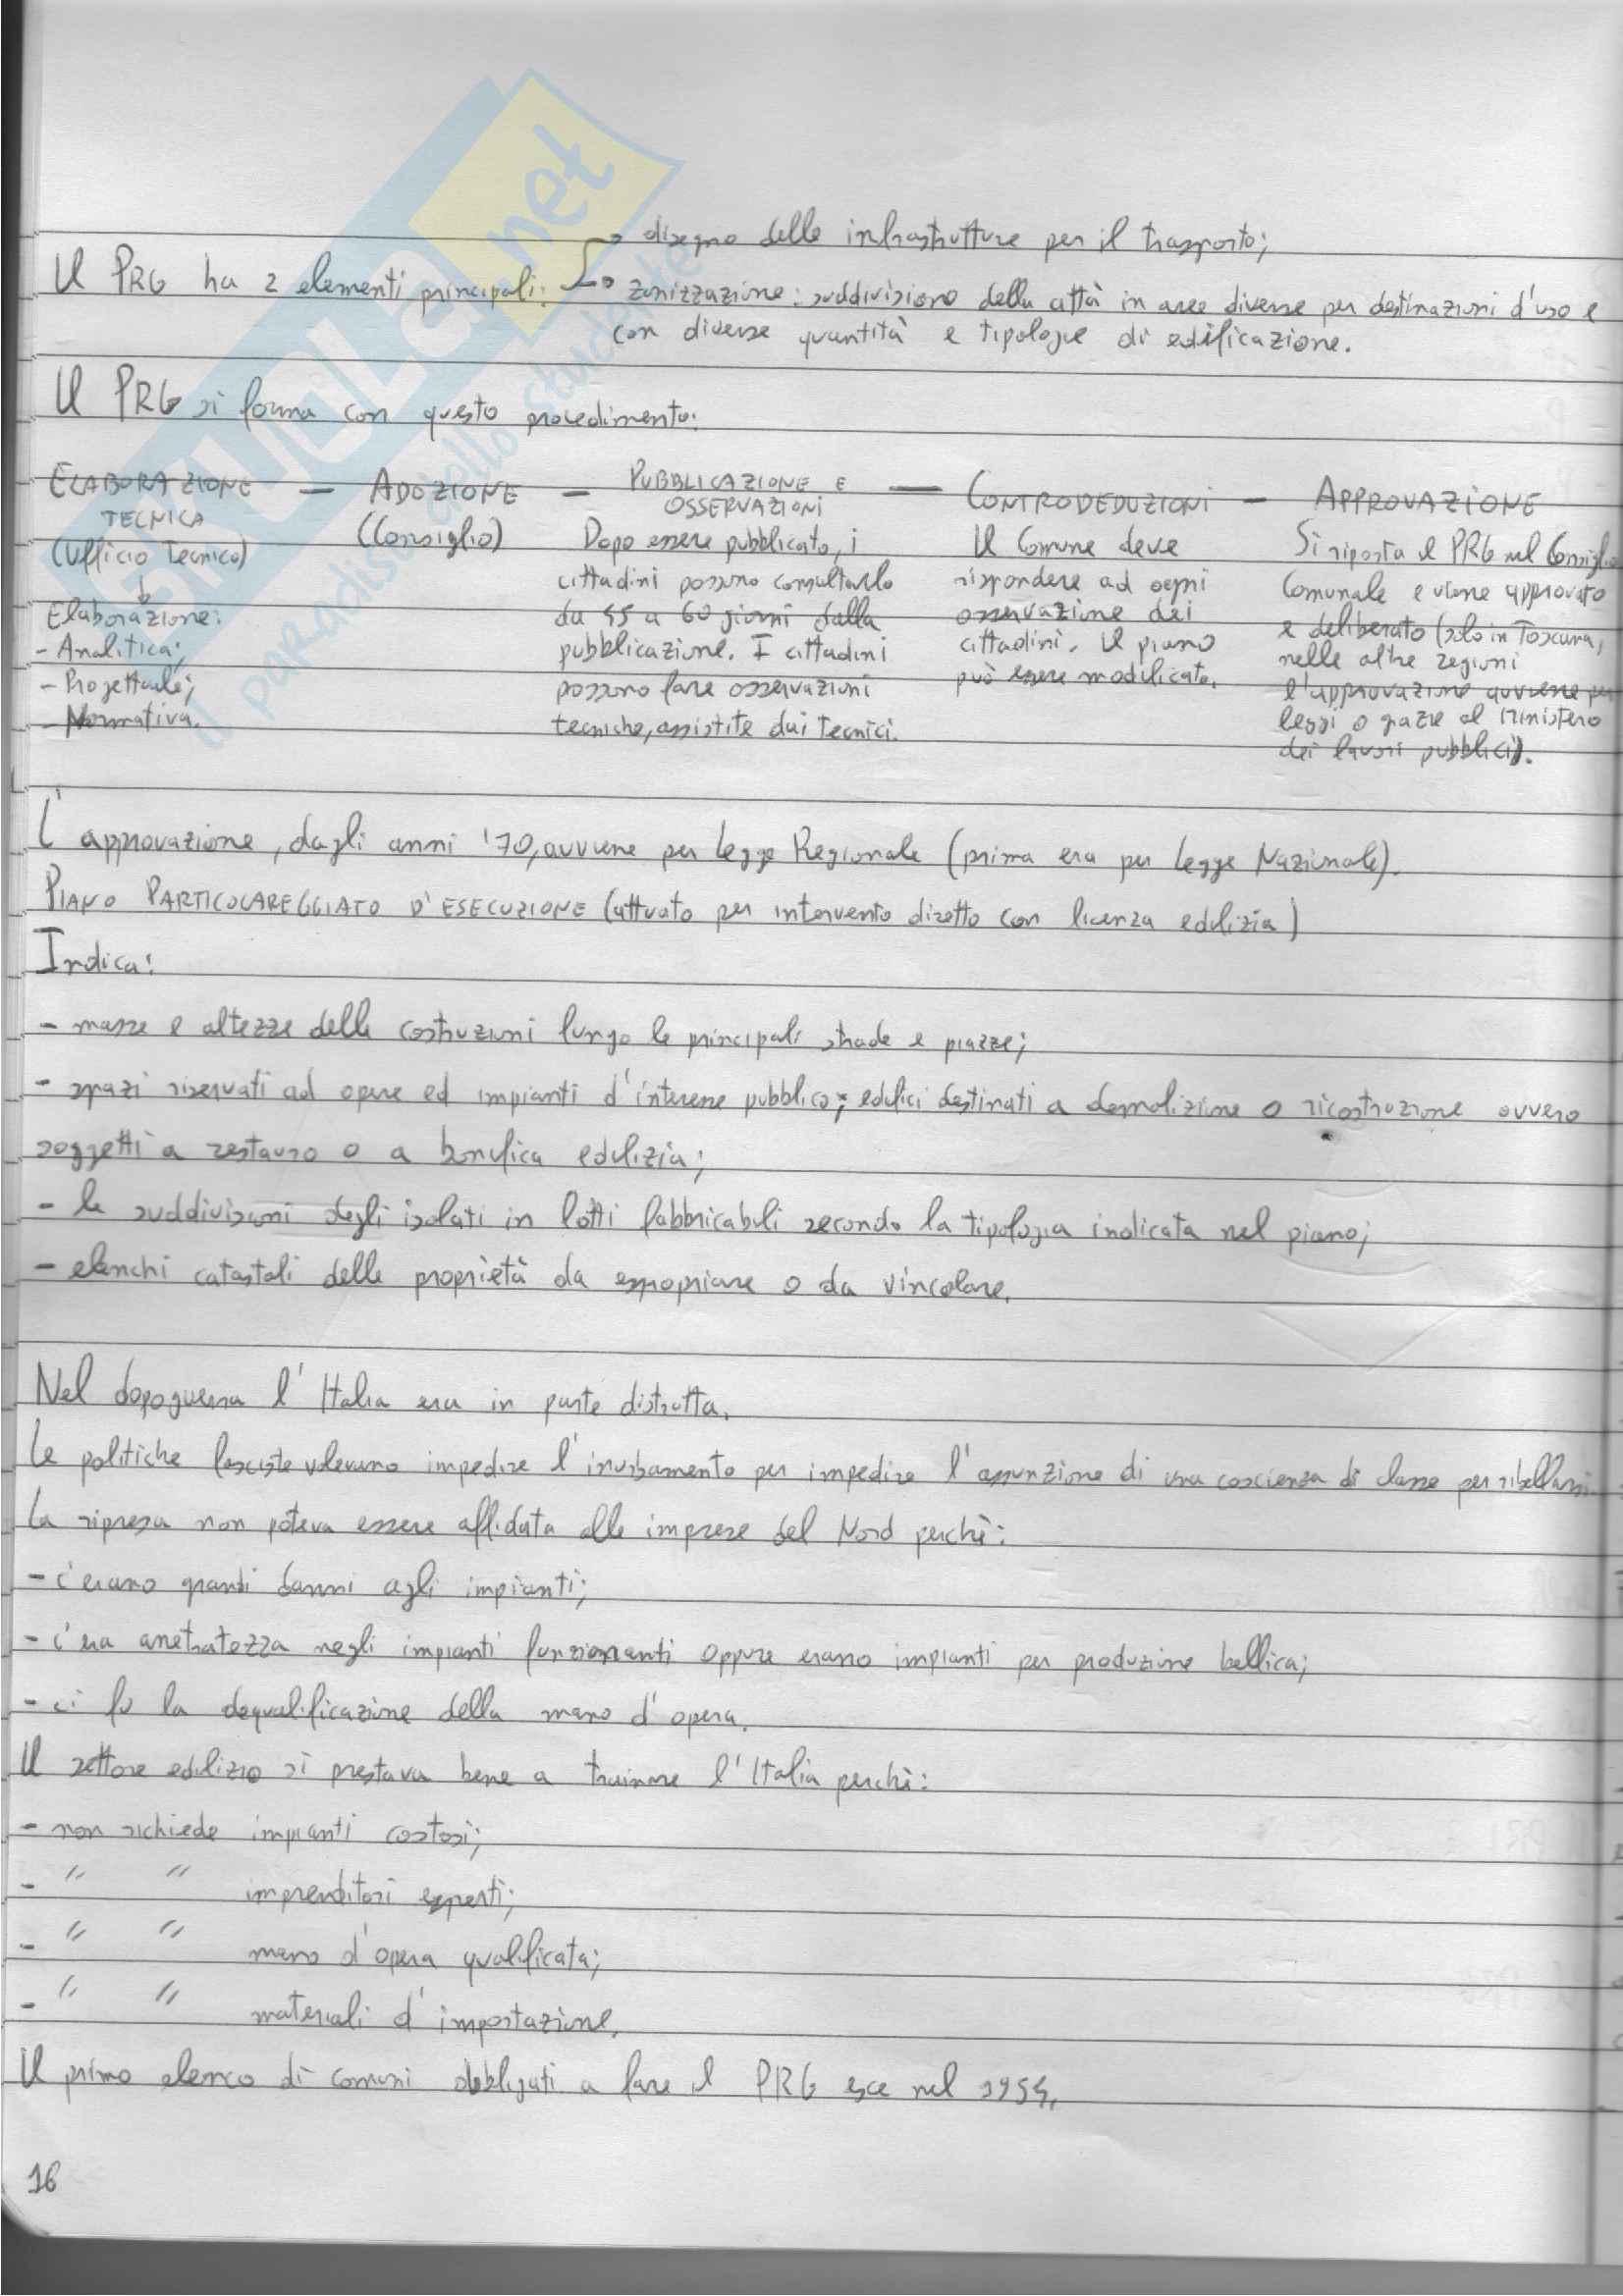 disegno delle infrastrutture per il trasporto;
Il PRG ha 2 elementi principali:
zonizzazione: suddivisione della città in aree diverse per destinazioni d'uso e
con diverse quantità e tipologie di edificazione.
Il PRG si forma con questo procedimento:
ELABORAZIONE TECNICA — ADOZIONE — PUBBLICAZIONE E OSSERVAZIONI — CONTRODEDUZIONI — APPROVAZIONE
(Ufficio Tecnico)
Elaborazione:
- Analitica;
- Progettuale;
- Normativa.
(Consiglio)
Dopo essere pubblicato, i
cittadini possono consultarlo
da 45 a 60 giorni dalla
pubblicazione. I cittadini
possono fare osservazioni
tecniche, assistite dai tecnici.
Il Comune deve
rispondere ad ogni
osservazione dei
cittadini. Il piano
può essere modificato.
Si riposta il PRG nel Consiglio
Comunale e viene approvato
e deliberato (solo in Toscana,
nelle altre regioni
l'approvazione avviene per
leggi o grazie al Ministero
dei lavori pubblici).
L'approvazione, dagli anni '70, avviene per Legge Regionale (prima era per Legge Nazionale).
PIANO PARTICOLAREGGIATO D'ESECUZIONE (attuato per intervento diretto con licenza edilizia)
Indica:
- masse e altezze delle costruzioni lungo le principali strade e piazze;
- spazi riservati ad opere ed impianti d'interesse pubblico; edifici destinati a demolizione o ricostruzione ovvero
soggetti a restauro o a bonifica edilizia;
- le suddivisioni degli isolati in lotti fabbricabili secondo la tipologia indicata nel piano;
- elenchi catastali delle proprietà da espropriare o da vincolare.
Nel dopoguerra l'Italia era in parte distrutta.
Le politiche fasciste volevano impedire l'inurbamento per impedire l'assunzione di una coscienza di classe per ribellarsi.
La ripresa non poteva essere affidata alle imprese del Nord perchè:
- c'erano grandi danni agli impianti;
- c'era aretratezza negli impianti funzionanti oppure erano impianti per produzione bellica;
- ci fu la dequalificazione della mano d'opera.
Il settore edilizio si prestava bene a trainare l'Italia perchè:
- non richiede impianti costosi;
- " " imprenditori esperti;
- " " mano d'opera qualificata;
- " " materiali d'importazione.
Il primo elenco di comuni obbligati a fare il PRG esce nel 1954.
16
SKUOLA.net
il paradiso dello studente